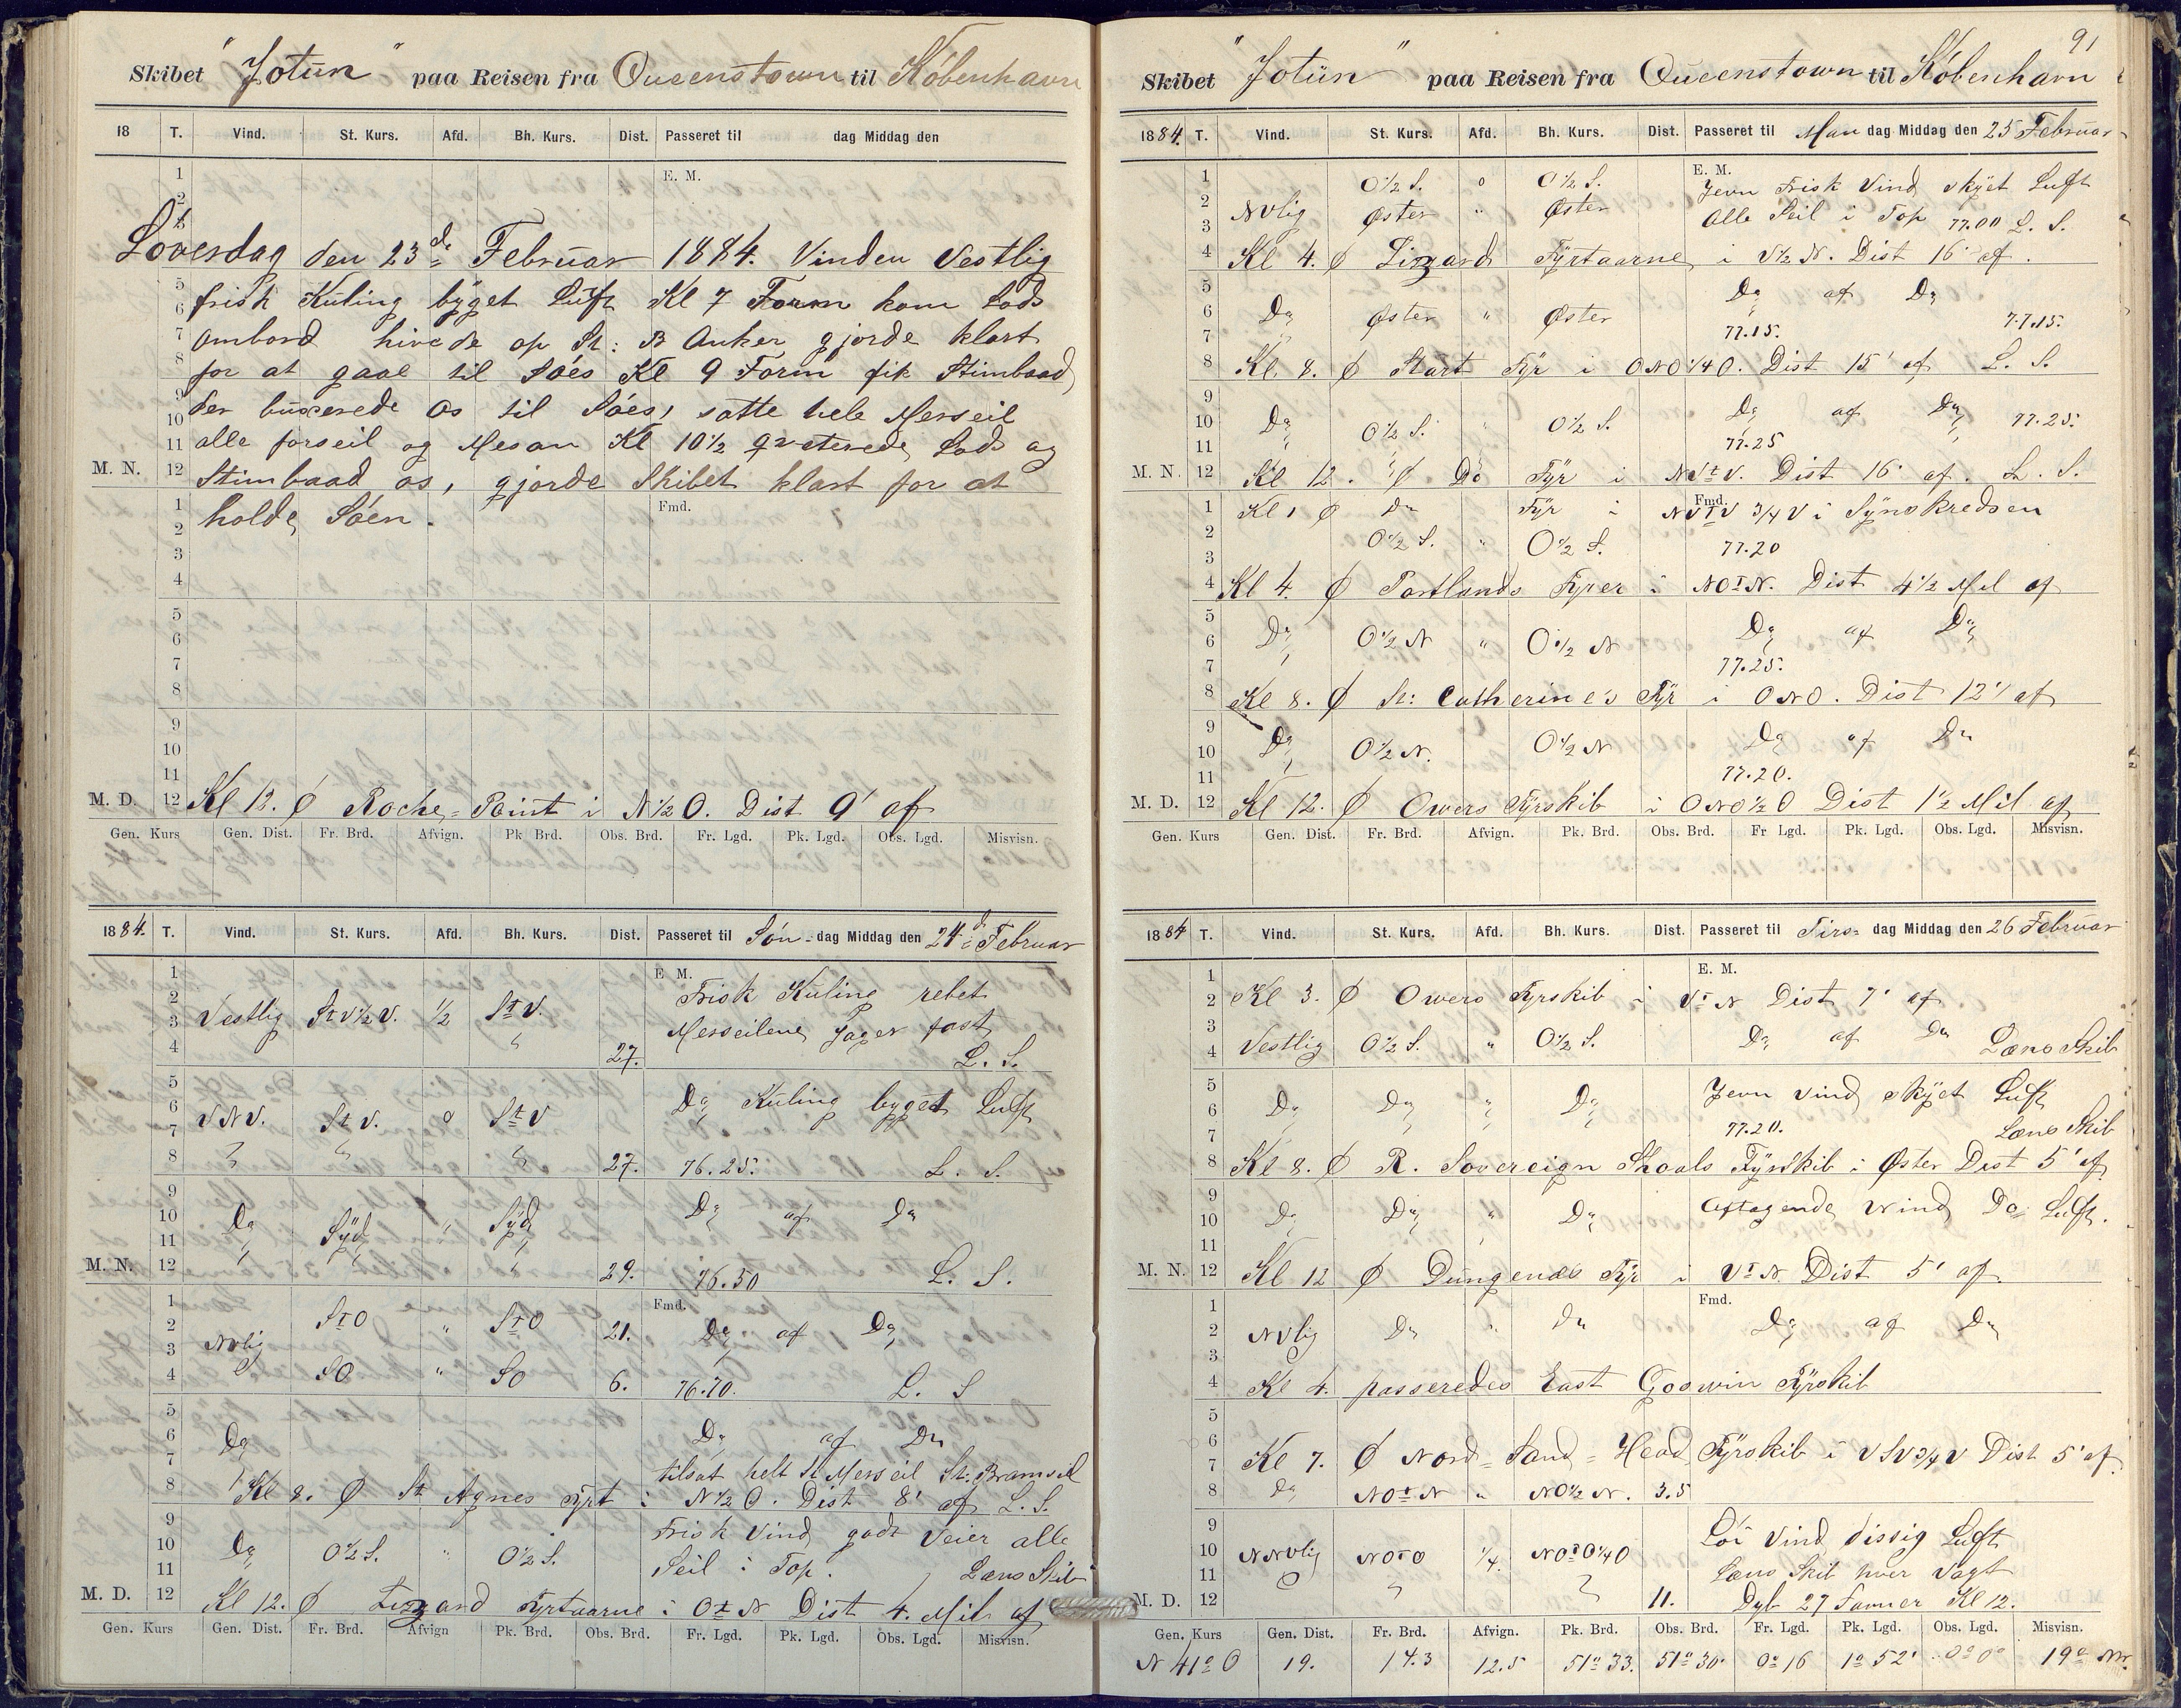 Skibet "Jotun" paa Reisen fra Queenstown til København
18 T. Vind. St. Kurs. Afd. Bh. Kurs. Dist. Passeret til dag Middag den
E. M.
Loverdag den 23de Februar 1884. Vinden Vestlig
frisk Kuling byget Luft Kl 7 Form kom Lods
ombord hivede op St: B Anker gjorde klart
for at gaae til Søes Kl 9 Form fik Stimbaad
der buxerede os til Søes, satte hele Merseil
alle forseil og Mesan Kl 10½ qveterede Lods og
M. N. 12 Stimbaad os, gjorde Skibet klart for at
holde Søen.
Fmd.
M. D. 12 Kl 12. Ø Roche-Point i N½O. Dist 9' af
Gen. Kurs Gen. Dist. Fr. Brd. Afvign. Pk Brd. Obs. Brd. Fr. Lgd. Pk. Lgd. Obs. Lgd. Misvisn.
1884. T. Vind. St. Kurs. Afd. Bh. Kurs. Dist. Passeret til Søn-dag Middag den 24d Februar
E M.
Frisk Kuling rebet
Vestlig StV½V. ½ StV. Merseilene Jager fast
27. L. S.
Do Kuling byget Luft
VNV. StV. o StV
27. 76.25. L. S.
Do Syd " Syd Do af Do
M. N. 12 29. 76.50 L. S.
Fmd.
NVlig StO " StO 21. Do af Do
SO " SO 6. 76.70. L. S
Do Do af Do
tilsat helt St Merseil St: Bramseil
Kl 8. Ø St Agnes Fyrt i N½O. Dist 8' af L. S.
Frisk Vind godt Veier alle
Do O½S. " O½S. Seil i Top. Læns Skib
M. D. 12 Kl 12. Ø Lizzard Fyrtaarne i OtN Dist 4. Mil af
Gen. Kurs Gen. Dist. Fr. Brd. Afvign Pk. Brd. Obs. Brd. Fr. Lgd. Pk. Lgd. Obs. Lgd. Misvisn.
91
Skibet "Jotun" paa Reisen fra Queenstown til København
1884. T. Vind. St. Kurs. Afd. Bh. Kurs. Dist. Passeret til Man dag Middag den 25 Februar
E. M.
O½S. o O½S. Jevn Frisk Vind skyet Luft
NVlig Øster " Øster Alle Seil i Top 77.00 L. S.
Kl 4. Ø Lizzard Fyrtaarne i V½N. Dist 16' af.
Do af Do
Do Øster " Øster 77.15. 77.15.
Kl. 8. Ø Start Fyr i ONO¼O. Dist 15' af L. S.
Do O½S. " O½S. Do af Do 77.25.
77.25
M. N. 12 Kl 12. Ø Do Fyr i NVtV. Dist 16' af. L. S.
Fmd.
Kl 1 Ø Do Fyr i NVtV ¾V i Synskredsen
O½S. " O½S. 77.20
Kl 4. Ø Portlands Fyer i NOtN. Dist 4½ Mil af
Do O½N " O½N Do af Do
77.25.
Kl 8. Ø St: Catherine's Fyr i ONO. Dist 12' af
Do O½N. O½N Do af Do
77.20.
M. D. 12 Kl 12. Ø Owers Fyrskib i ONO½O Dist 1½ Mil af
Gen. Kurs Gen. Dist. Fr. Brd. Afvign. Pk. Brd. Obs. Brd. Fr Lgd. Pk. Lgd. Obs. Lgd. Misvisn.
1884 T. Vind. St. Kurs. Afd. Bh. Kurs. Dist. Passeret til Tirs- dag Middag den 26 Februar
E. M.
Kl 3. Ø Owers Fyrskib i VtN Dist 7' af
Vestlig O½S. " O½S. Do af Do Læns Skib
Do Do " Do Jevn Vind skyet Luft
77.20. Læns Skib
Kl 8. Ø R. Sovereign Shoals Fyrskib i Øster Dist 5' af
Do Do " Do Aftagende Vind Do Luft.
M. N. 12 Kl 12 Ø Dungenæs Fyr i VtN. Dist 5' af
Fmd.
NVlig Do " Do Do af Do
Kl 4. passeredes East Goswin Fyrskib
Kl 7. Ø Nord-Sand-Head Fyrskib i VSV¾V Dist 5' af
Do NOtN " NO½N. 3.5
Løi Vind dissig Luft
NNVlig NOtO ¼. NOtO¼O
Læns Skib hver Vagt
M. D. 12 11. Dyb 27 Favner Kl 12.
Gen. Kurs Gen. Dist. Fr. Brd. Afvign. Pk. Brd. Obs. Brd. Fr. Lgd. Pk. Lgd. Obs. Lgd. Misvisn.
N 41° O 19. 14.3 12.5 51° 33. 51° 30' 0° 16 1° 52' 0° 0° 19°